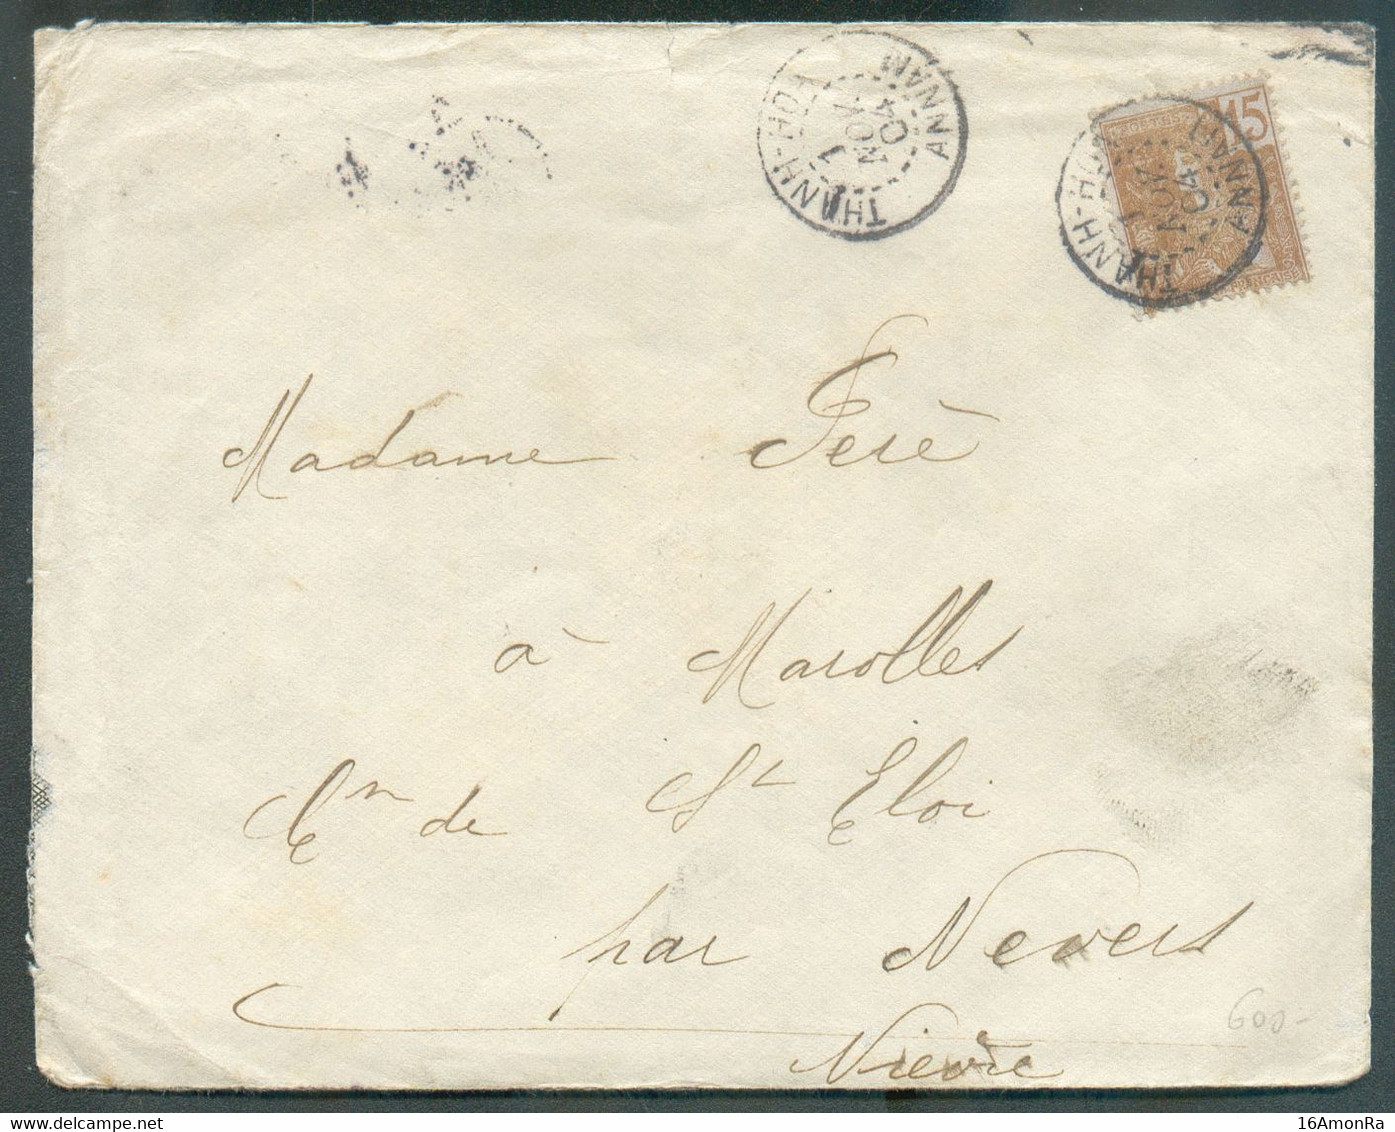 THANH-HOA
1
NOV.
04
ANNAM
15
THANH-HOA
1
NOV
04
ANNAM
FRANÇAISE
Madame Feré
à Marolles
Cne de St Eloi
par Nevers
Nièvre
600-
16AmonRa